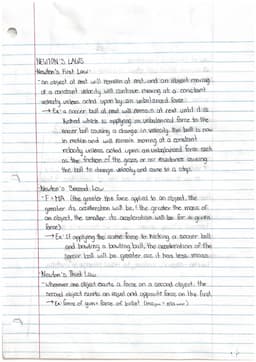 NEWTON'S LAWS
Newton's First Law:
- an object at rest will remain at rest and an object moving
at a constant velocity will continue moving at a constant
velocity unless acted upon by an unbalanced force
→ Ex: a soccer ball at rest will remain at rest until it is
kicked which is applying an unbalanced force to the
soccer ball causing a change in velocity. The ball is now
in motion and will remain moving at a constant
velocity unless acted upon an unbalanced force such
as the friction of the grass or air resistance causing
the ball to change velocity and come to a stop.
Newton's Second Law
- F=MA. (the greater the force applied to an object, the
greater its acceleration will be, & the greater the mass of
an object, the smaller its acceleration will be for a given
force)
→ Ex: If applying the same force to kicking a soccer ball
and bowling a bowling ball, the acceleration of the
soccer ball will be greater as it has less mass.
Newton's Third Law
- Whenever one object exerts a force on a second object, the
second object exerts an equal and opposite force on the first.
→ Ex: force of gun = force of bullet